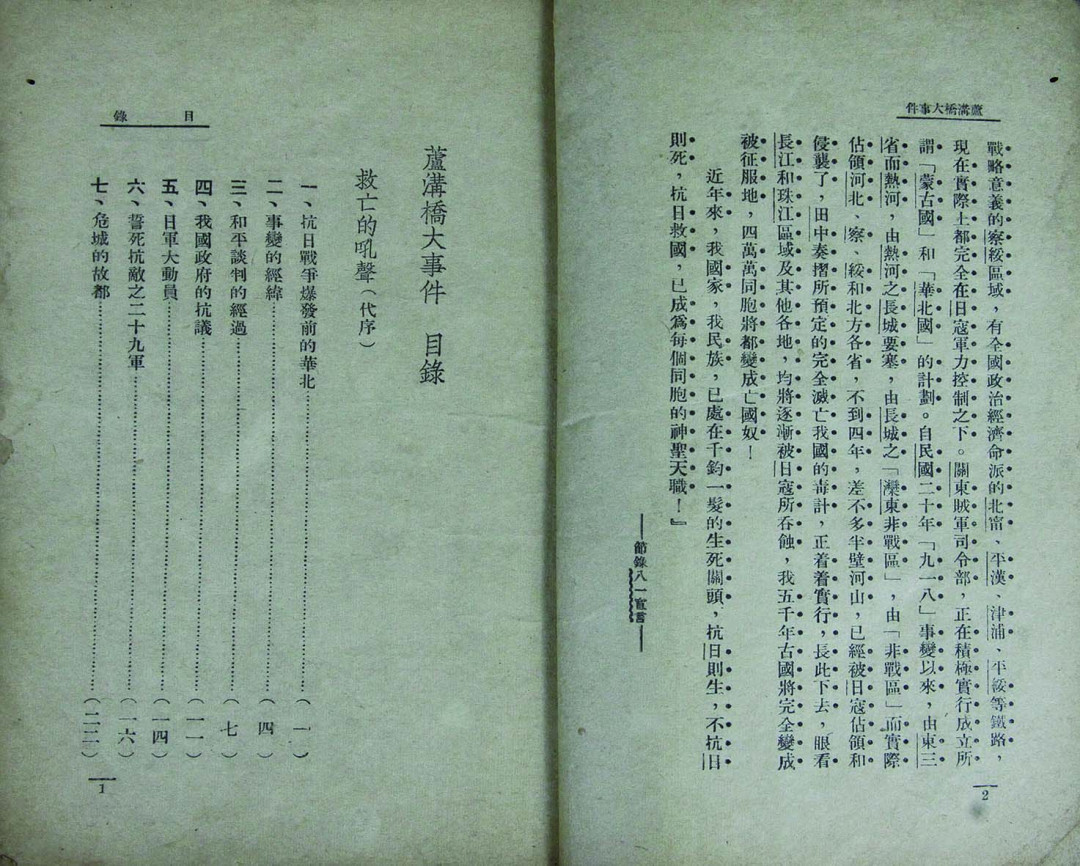 蘆溝橋大事件
戰略意義的察綏區域，有全國政治經濟命派的北甯、平漢、津浦、平綏等鐵路，
現在實際上都完全在日寇軍力控制之下。關東賊軍司令部，正在積極實行成立所
謂「蒙古國」和「華北國」的計劃。自民國二十年「九一八」事變以來，由東三
省而熱河，由熱河之長城要塞，由長城之「灤東非戰區」，由「非戰區」而實際
佔領河北、察、綏和北方各省，不到四年，差不多半壁河山，已經被日寇佔領和
侵襲了，田中奏摺所預定的完全滅亡我國的毒計，正着着實行，長此下去，眼看
長江和珠江區域及其他各地，均將逐漸被日寇所吞蝕，我五千年古國將完全變成
被征服地，四萬萬同胞將都變成亡國奴！
近年來，我國家，我民族，已處在千鈞一髮的生死關頭，抗日則生，不抗日
則死，抗日救國，已成爲每個同胞的神聖天職！』
——節錄八一宣言——
2
目錄
蘆溝橋大事件 目錄
救亡的吼聲（代序）
一、抗日戰爭爆發前的華北……（一）
二、事變的經緯……（四）
三、和平談判的經過……（七）
四、我國政府的抗議……（一一）
五、日軍大動員……（一四）
六、誓死抗敵之二十九軍……（一六）
七、危城的故都……（二二）
1